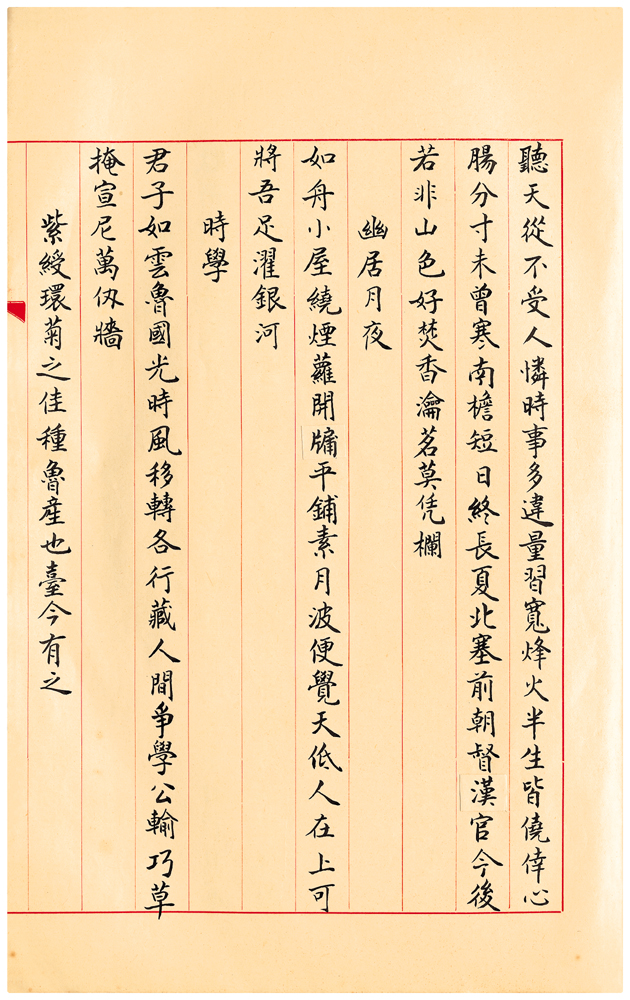 聽天從不受人憐時事多違量習寬烽火半生皆僥倖心
腸分寸未曾寒南檐短日終長夏北塞前朝督漢官今後
若非山色好焚香瀹茗莫凭欄
幽居月夜
如舟小屋繞煙蘿開牖平鋪素月波便覺天低人在上可
將吾足濯銀河
時學
君子如雲魯國光時風移轉各行藏人間爭學公輸巧草
掩宣尼萬仞牆
紫綬環菊之佳種魯産也臺今有之